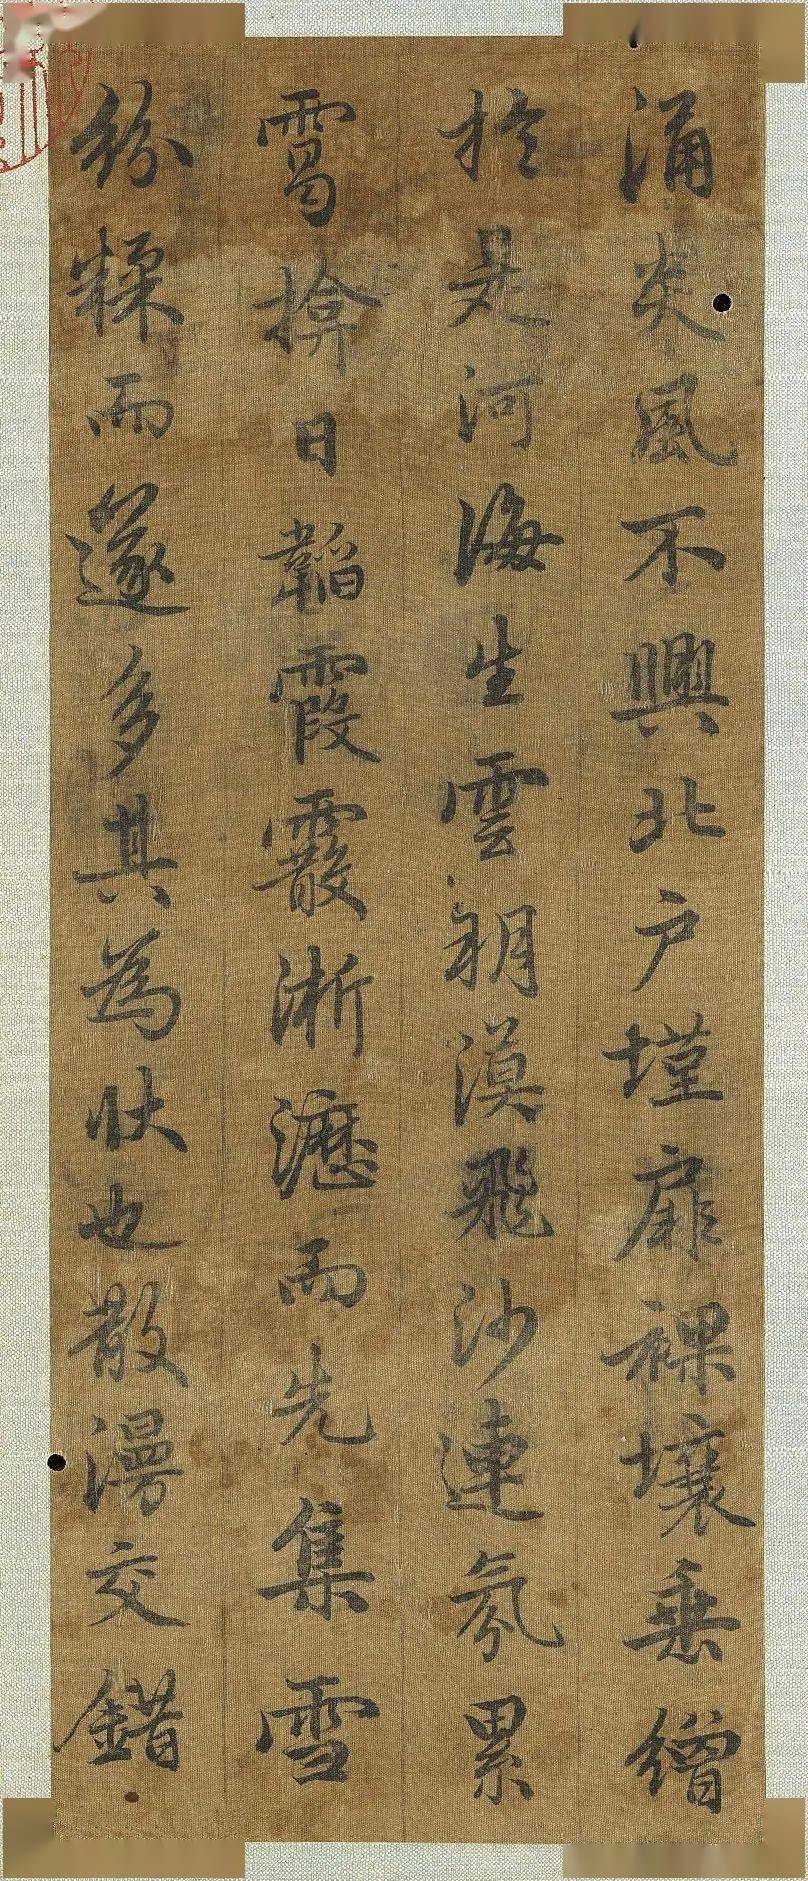 涌炎風不興北户墐扉裸壤垂繒
扵是河海生雲朔漠飛沙連氛累
靄揜日韜霞霰淅瀝而先集雪
紛糅而遂多其為狀也散漫交錯